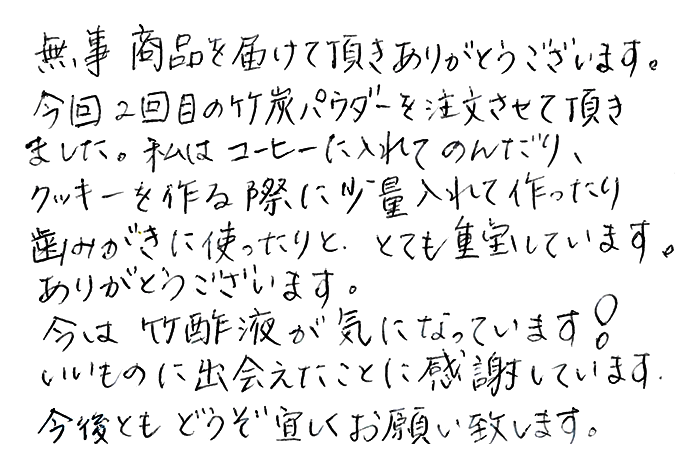 無事 商品を届けて頂きありがとうございます。
今回2回目の竹炭パウダーを注文させて頂き
ました。私はコーヒーに入れてのんだり、
クッキーを作る際に少量入れて作ったり
歯みがきに使ったりと、とても重宝しています。
ありがとうございます。
今は竹酢液が気になっています!
いいものに出会えたことに感謝しています.
今後ともどうぞ宜しくお願い致します。